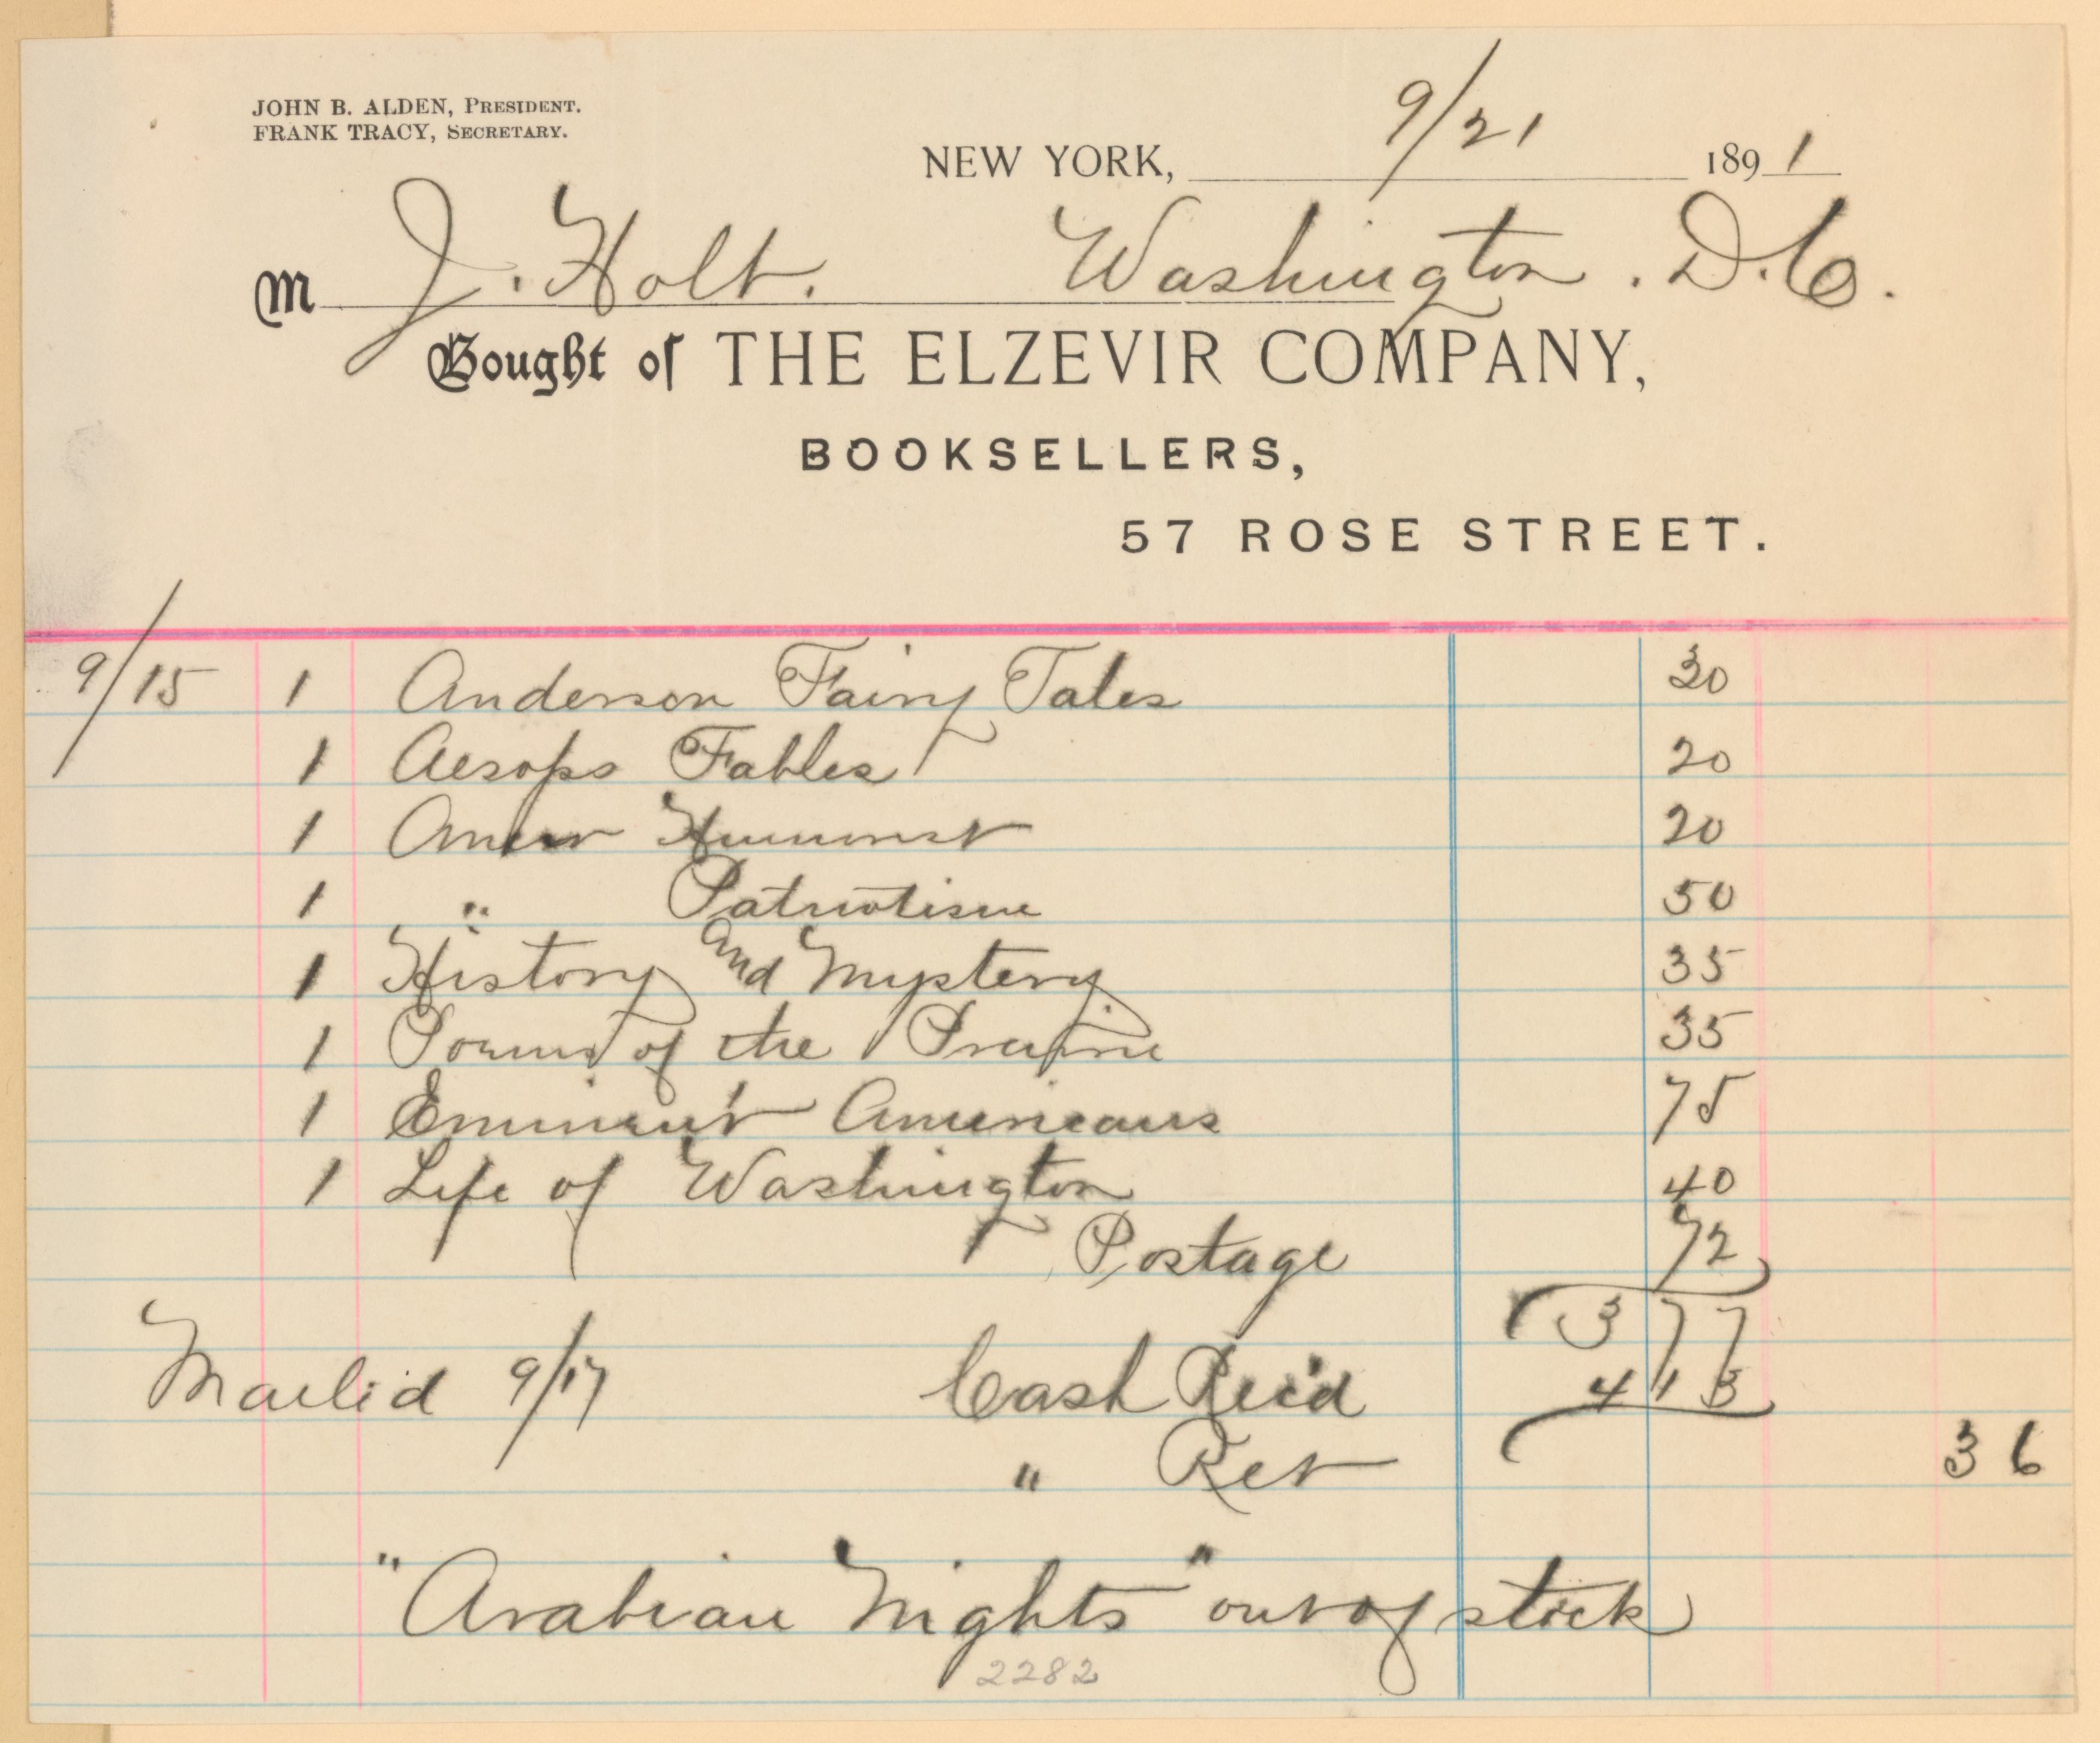 JOHN B. ALDEN, PRESIDENT.
FRANK TRACY, SECRETARY.
NEW YORK, 9/21 1891
M J. Holt. Washington. D.C.
Bought of THE ELZEVIR COMPANY,
BOOKSELLERS,
57 ROSE STREET.
9/15 1 Anderson Fairy Tales 30
1 Aesops Fables 20
1 Amer Humorist 20
1 " Patriotism 50
1 History and Mystery 35
1 Poems of the Prairie 35
1 Eminent Americans 75
1 Life of Washington 40
Postage 72
3 77
Mailed 9/17 Cash Rec'd 4 13
" Ret 36
"Arabian Nights" out of stock
2282